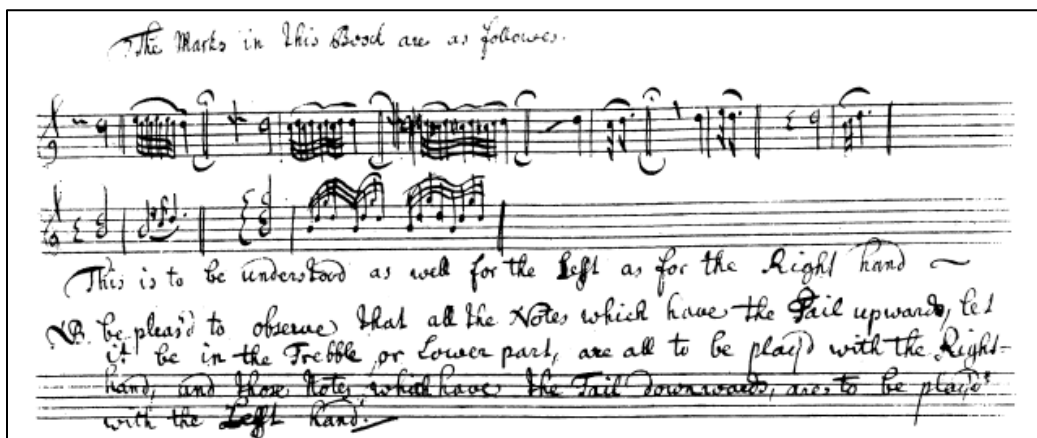 The Marks in this Book are as followes.
This is to be understood as well for the Left as for the Right hand
NB. be pleas'd to observe that all the Notes which have the Tail upwards, let
it be in the Trebble or Lower part, are all to be play'd with the Right-
hand, and those Notes which have the Tail downwards, are to be play'd
with the Left hand.